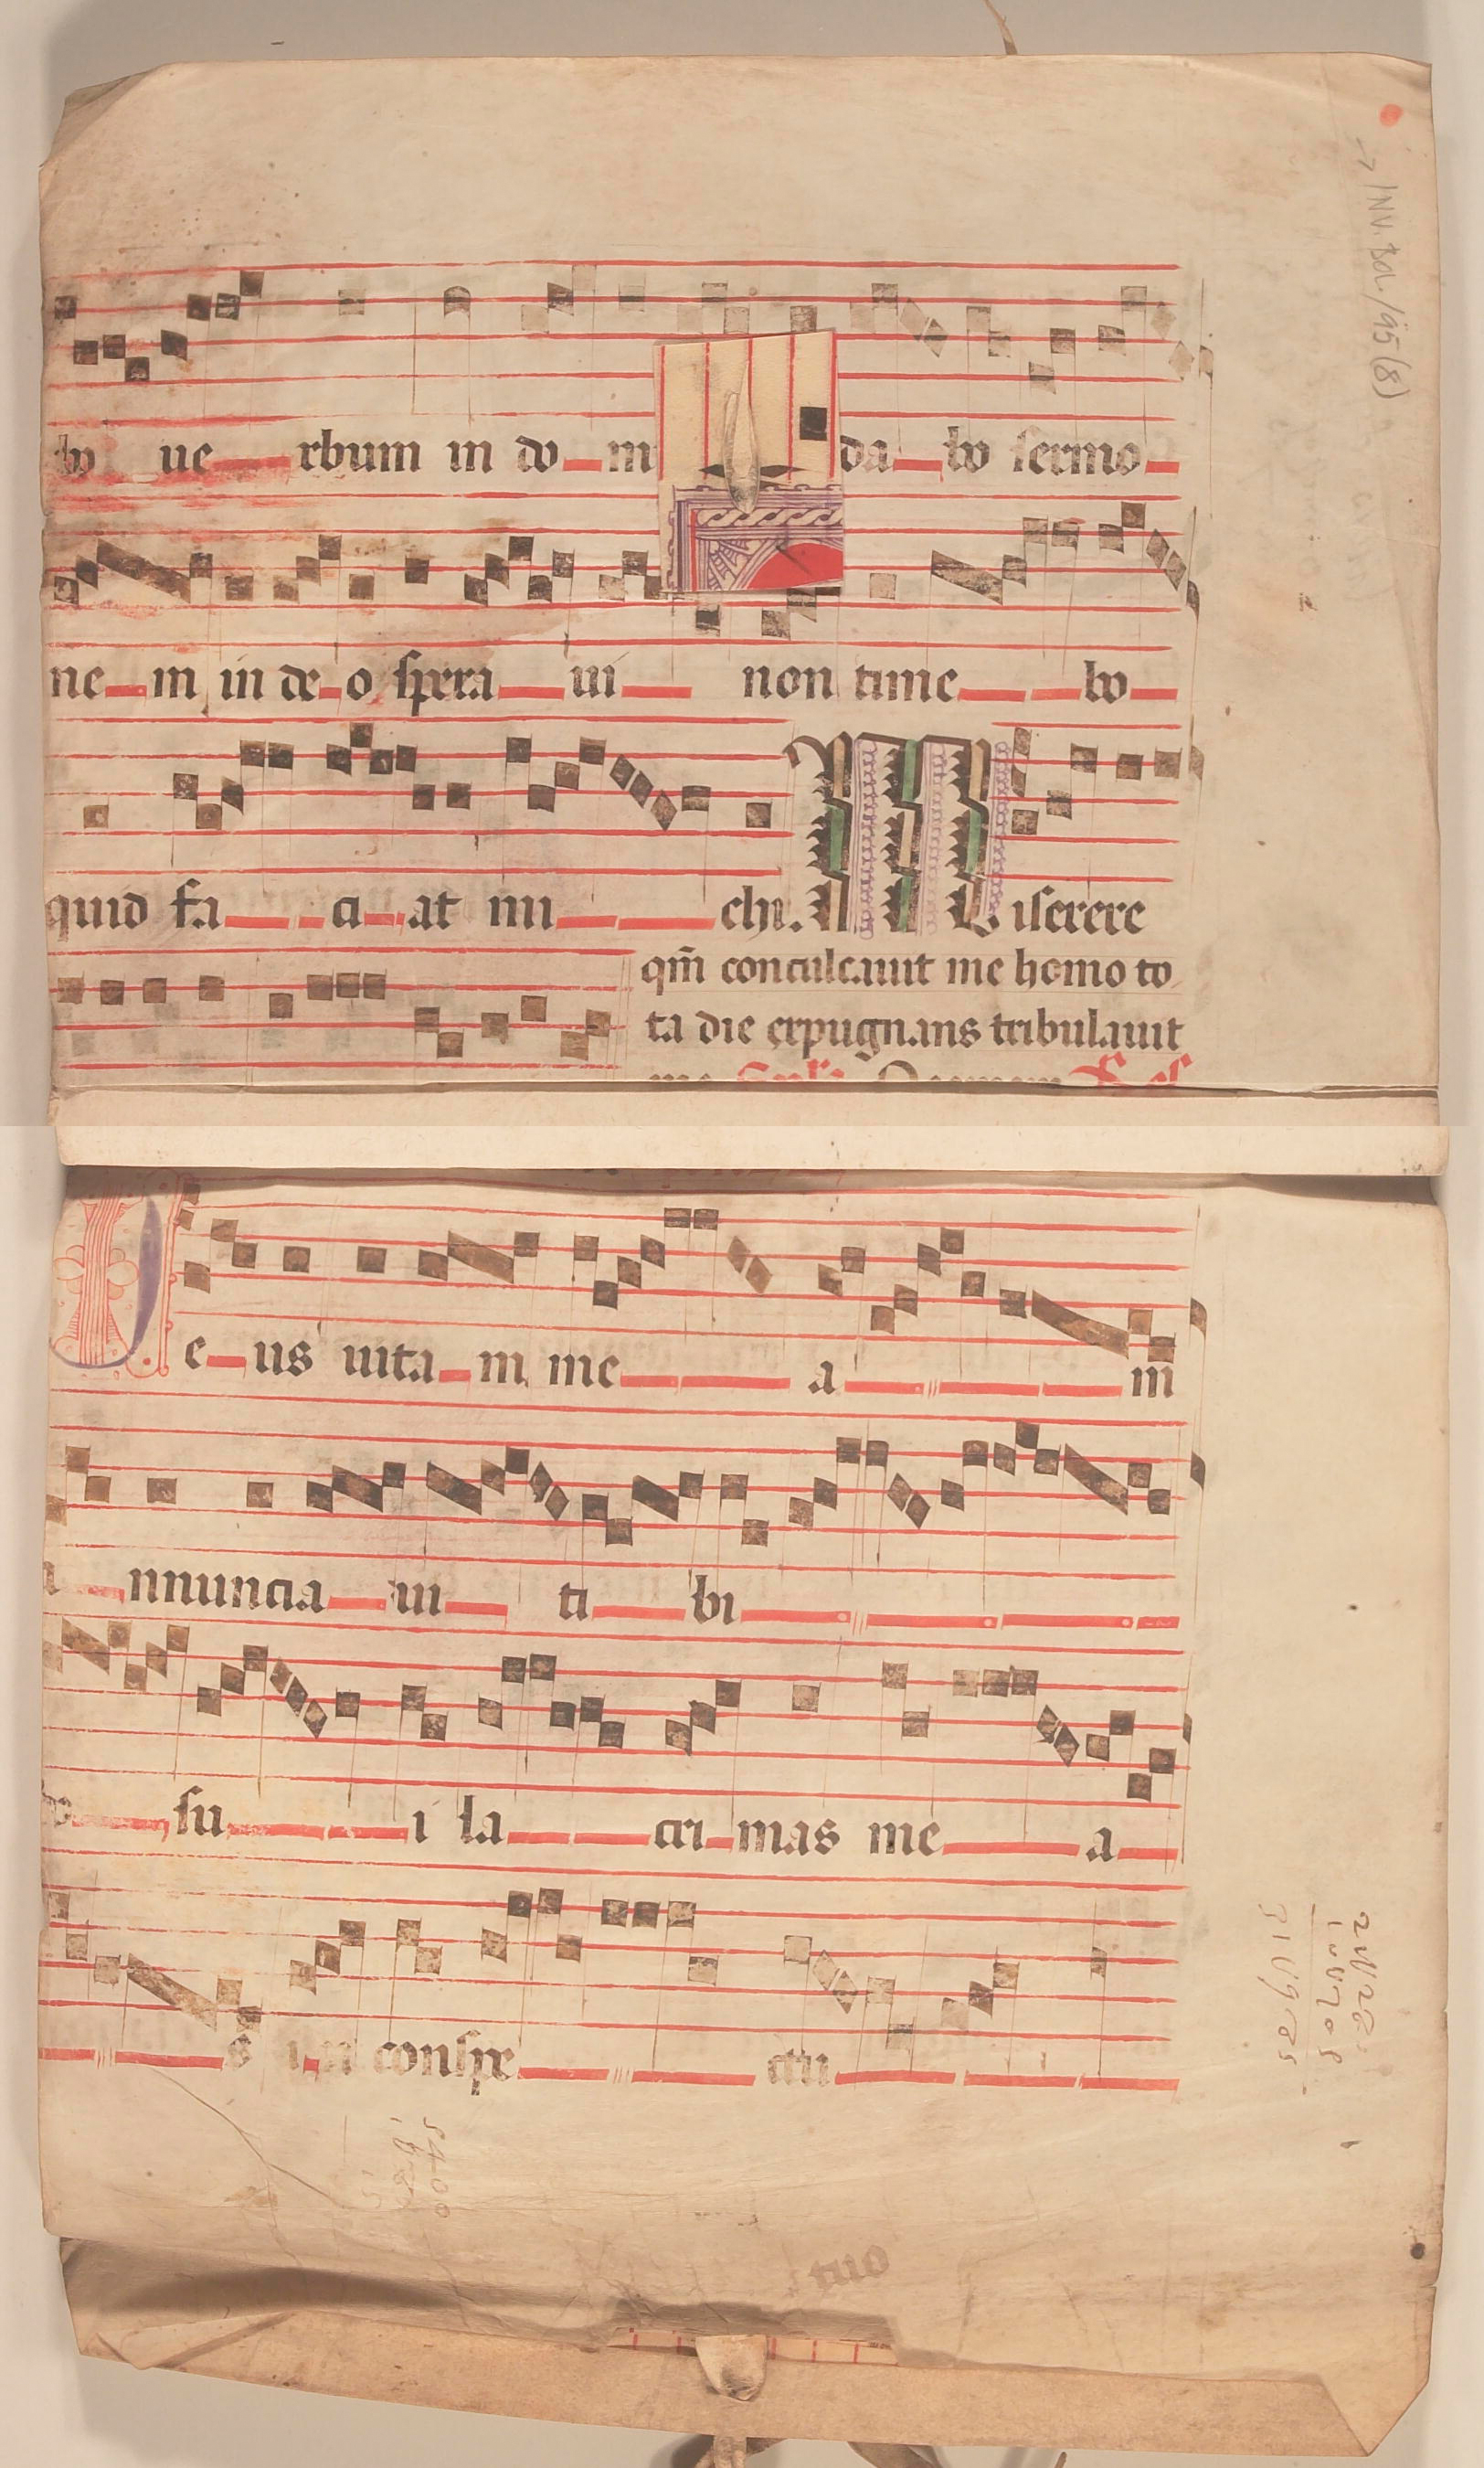 bo ue rbum in do m da bo sermo
ne m in de o spera ui non time bo
quid fa ci at mi chi. Miserere
qm̄ conculcauit me homo to
ta die expugnans tribulauit
D e us uita m me a m
a nnuncia ui ti bi
po su i la cri mas me a
s i n conspe ctu
tuo
→ INV. BOL/95(8)